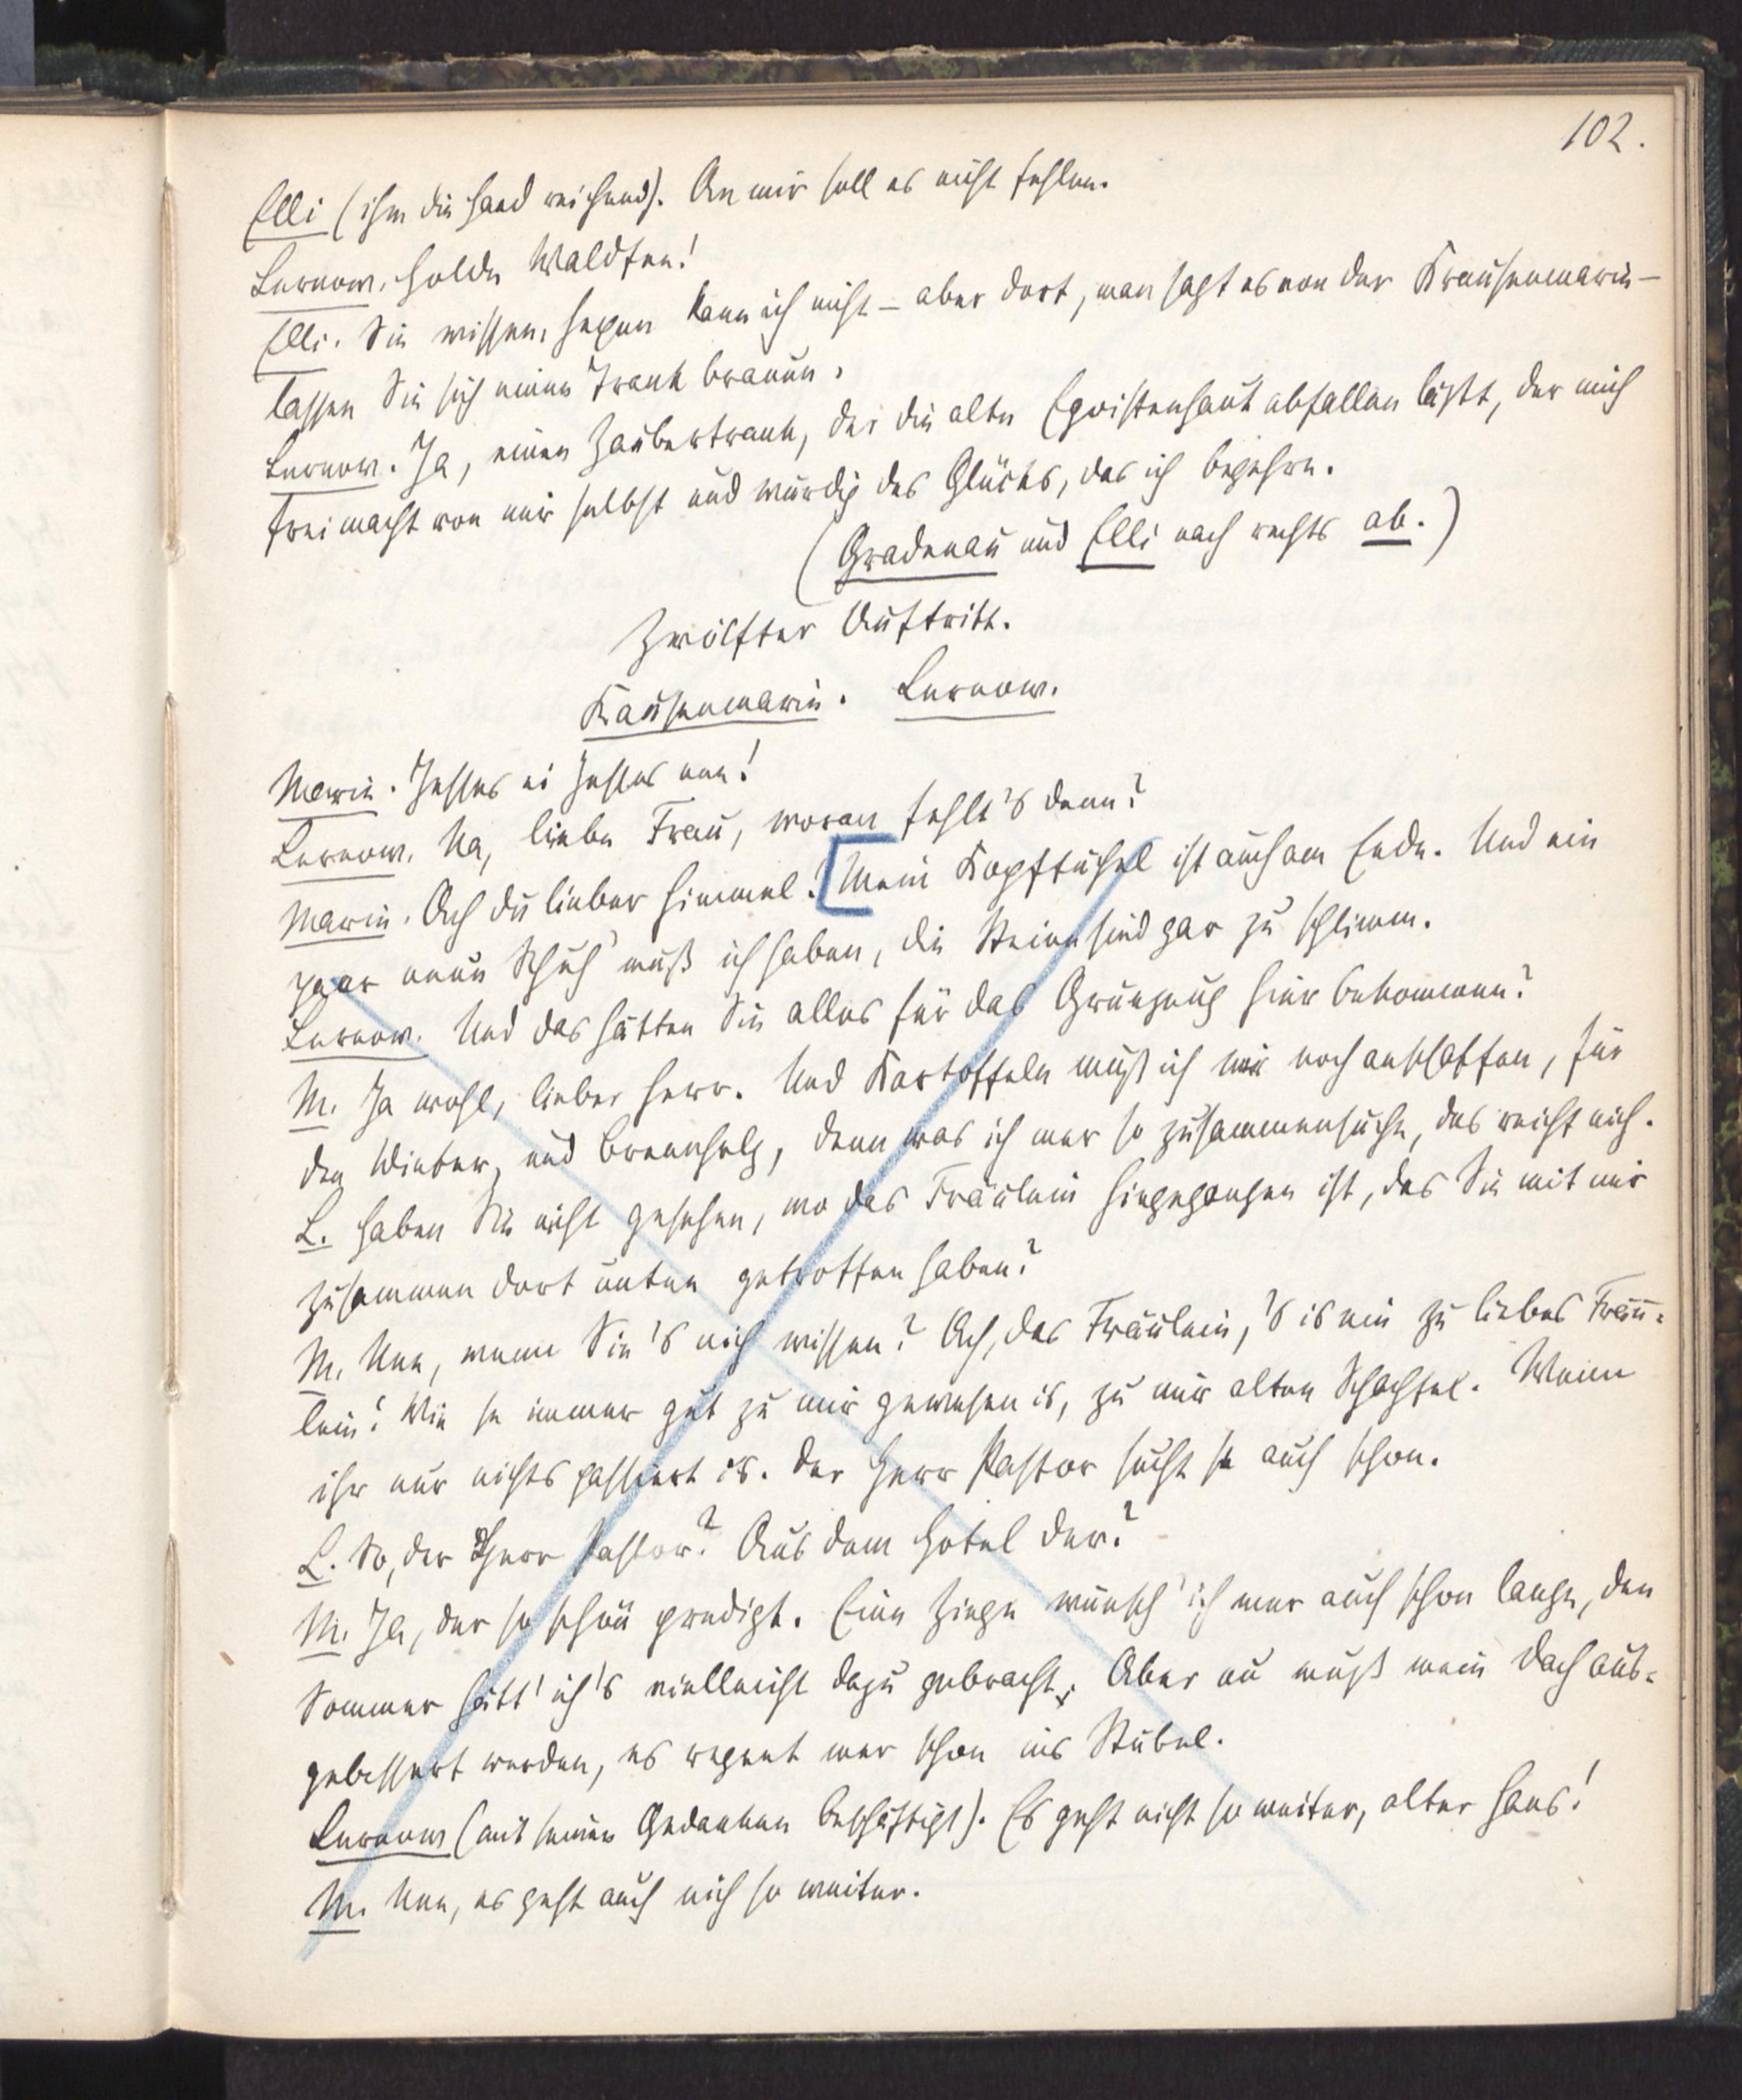 102.
Elli (ihm die Hand reichend). An mir soll es nicht fehlen.
Lernow. Holde Waldfee!
Elli. Sie wissen, hexen kann ich nicht – aber dort, man sagt es von der Krausenmarie –
lassen Sie sich einen Trank brauen.
Lernow. Ja, einen Zaubertrank, der die alte Egoistenhaut abfallen läßt, der mich
frei macht von mir selbst und würdig des Glücks, das ich begehre.
(Gradenau und Elli nach rechts ab.)
Zwölfter Auftritt.
Kausenmarie. Lernow.
Marie. Jesses ei Jesses nee!
Lernow. Na, liebe Frau, woran fehlt's denn?
Marie. Ach du lieber Himmel! [Mein Kopftüchel ist auch am Ende. Und ein
paar neue Schuh' muß ich haben, die Steine sind gar zu schlimm.
Lernow. Und das hätten Sie alles für das Grünzeug hier bekommen?
M. Ja wohl, lieber Herr. Und Kartoffeln muß ich mir noch anschaffen, für
den Winter, und Brennholz, denn was ich mer so zusammensuche, das reicht nich.
L. Haben Sie nicht gesehen, wo das Fräulein hingegangen ist, das Sie mit mir
zusammen dort unten getroffen haben?
M. Nee, wenn Sie's nich wissen? Ach, das Fräulein, 's is ein zu liebes Fräu-
lein! Wie se immer gut zu mir gewesen is, zu mir alten Schachtel. Wenn
ihr nur nichts passiert is. Der Herr Pastor sucht se auch schon.
L. So, der Herr Pastor? Aus dem Hotel der?
M. Ja, der so schön predigt. Eine Ziege wünsch' ich mer auch schon lange, den
Sommer hätt' ich's vielleicht dazu gebracht. Aber nu muß mein Dach aus-
gebessert werden, es regent mer schon ins Stübel.
Lernow (mit seinen Gedanken beschäftigt). Es geht nicht so weiter, alter Hans!
M. Nee, es geht auch nich so weiter.